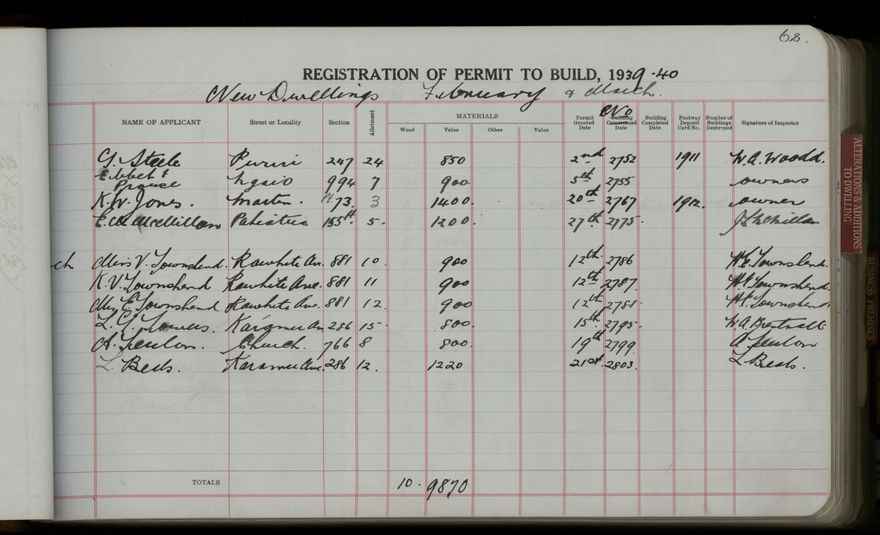 62.
REGISTRATION OF PERMIT TO BUILD, 1939-40
New Dwellings February & March.
NAME OF APPLICANT Street or Locality Section Allotment MATERIALS Permit Granted Date No Building Commenced Date Building Completed Date Footway Deposit Card No. Number of Buildings Destroyed Signature of Inspector
Wood Value Other Value
G. Steele Puriri 247 24 850 2nd 2752 1911 W. A. Woodd.
Ebbet &
Prouse Ngaio 994 7 900 5th 2755 owners
K. W. Jones. Master. Pt 73. 3 1400. 20th 2767 1912. owner
McMillan Pahiatua 5. 1200. 27th 2775.
ch Miss V. Townshend. Rawhiti Ave. 881 10. 900 12th. 2786 Townshend.
K. V. Townshend Rawhiti Ave. 881 11 900 12th 2787. Townshend.
E. Townshend Rawhiti Ave. 881 12. 900 12th Townshend
Karamu Av 286 15. 800. 15th 2795. W. A.
A. Fenton. Church. 766 8 800. 19th 2799. A. Fenton
L. Best. Karamu Ave. 286 12. 1220 21st. 2803. L. Best.
TOTALS 10. 9870
ALTERATIONS & ADDITIONS TO DWELLING
BUSINESS PREMISES